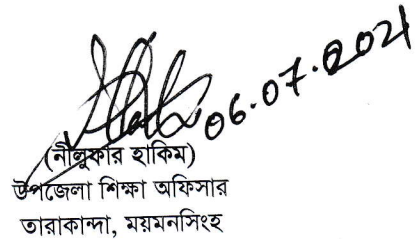 06.07.2021
(নীলুফার হাকিম)
উপজেলা শিক্ষা অফিসার
তারাকান্দা, ময়মনসিংহ